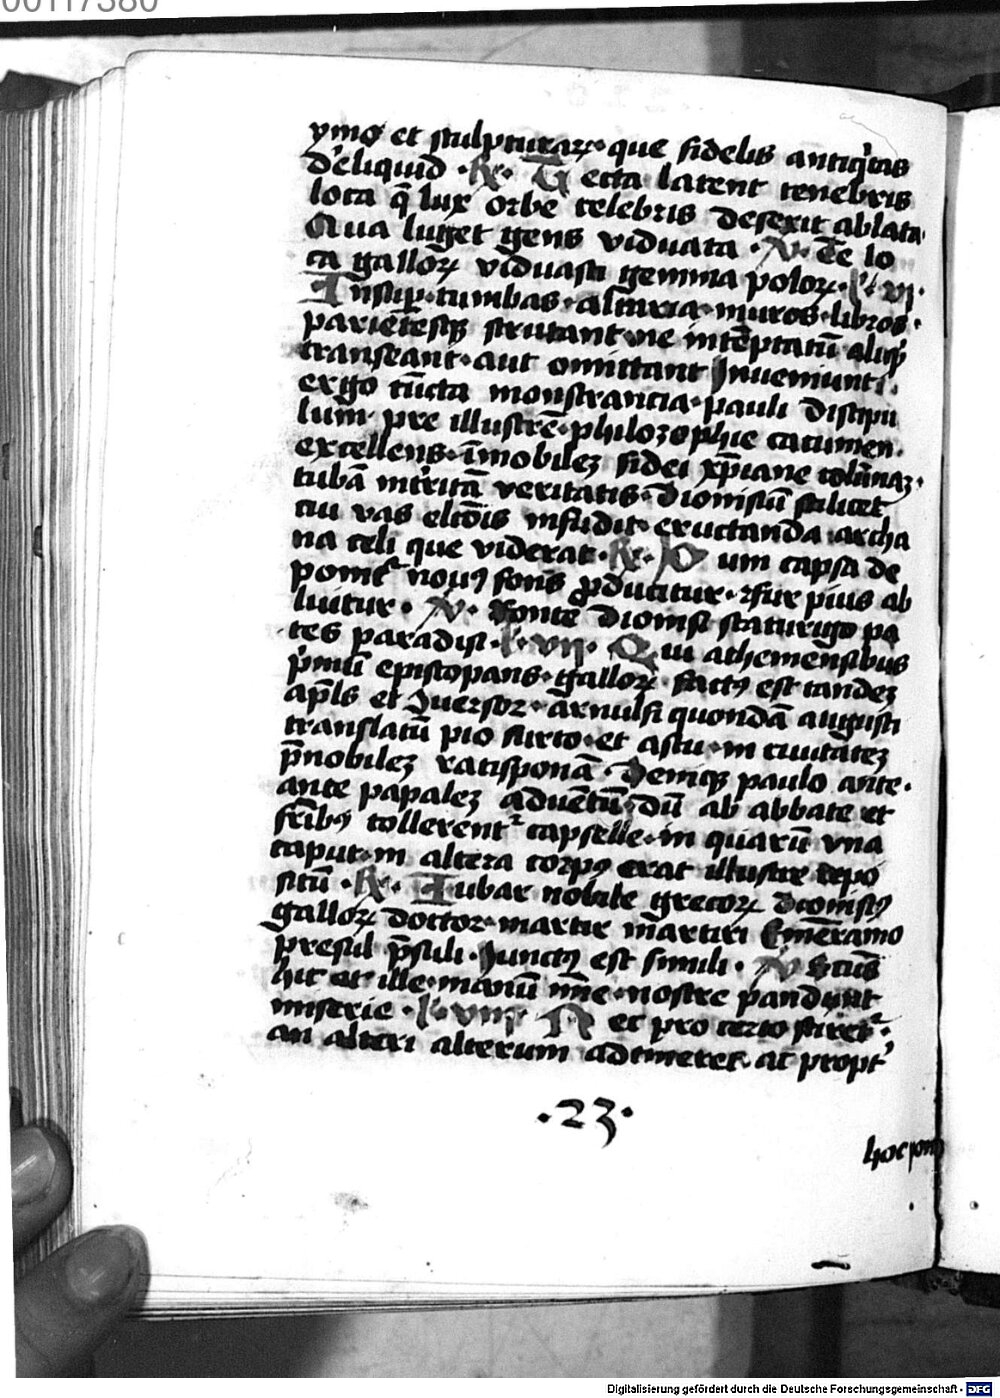 00117380
ymo et sculpturaꝝ· que fidelis antiq̇tas
deliquid ·R̃· Tecta latent tenebris
loca q̃ lux orbe celebris deserit ablata
Qua luget gens viduata · V̇· Te lo
ca galloꝝ viduasti gemma poloꝝ· l̃ vj·
tumbas· muros· libros·
scrutant· ne
transeant· aut omittant Inueniunt
ergo cūcta monstrancia· pauli discipu
lum· pre illustrē· philozophie cacumen·
excellens· īmobilez fidei xp̄iane colūnaz·
tubā veritatis· Dionisiū scilicet
cui vas elcōis infudit· eructanda archa
na celi que viderat· R̃· Dum capsa de
fons ꝓducitur· pius ab
luitur · V̇· Fonte Dionisi scaturigo pa
tes paradisi· l̃· vij· Qui atheniensibus
p̍mū episcopans· galloꝝ factꝰ est tandez
ap̄ls et arnulfi quondā augusti
translatū pio furto· et astu· in ciuitatez
p̄nobilez ratisponā· Deniqꝫ paulo ante·
ante papalez aduētū· dū ab abbate et
fr̄ibꝰ tollerent᷑ capselle· in quarū vna
caput· in altera corpꝰ erat illustre repo
sitū· R̃· Iubar nobile grecoꝝ Dionisiꝰ
galloꝝ doctor· martir martiri Emeramo
presul p̄suli· Junctꝰ est simili· V̇
hic et ille· nostre pandunt
miserie · l̃· viij· Nec pro certo sciret᷑·
an alteri alterum adtineret· at propt̉
·23·
hoc
Digitalisierung gefördert durch die Deutsche Forschungsgemeinschaft - DFG